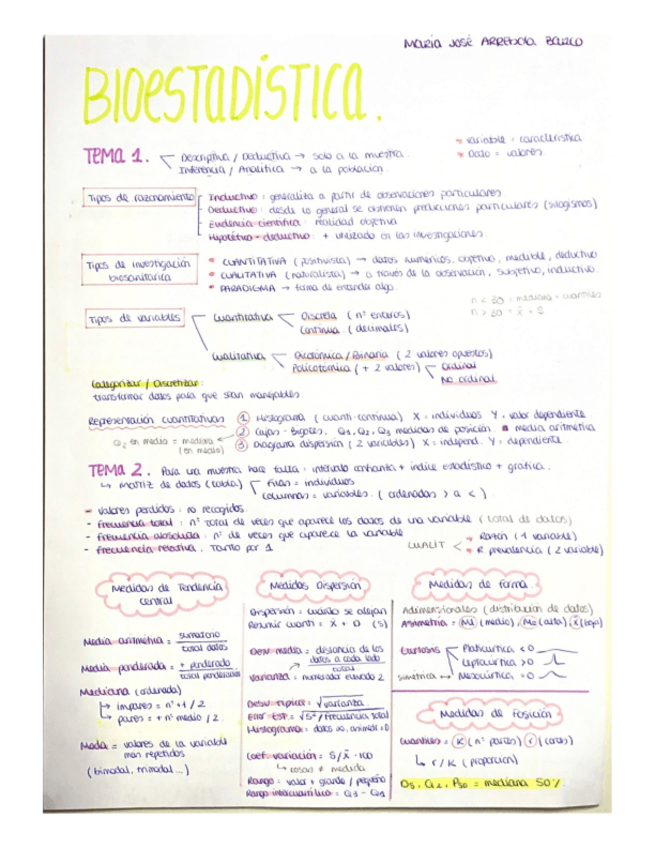 MARÍA JOSÉ ARREBOLA
BIOESTADÍSTICA.
• Variable = característica
• Dato = valores
TEMA 1. Descriptiva / Deductiva → solo a la muestra.
Inferencia / Analítica → a la población.
Tipos de razonamiento
Inductivo: generaliza a partir de observaciones particulares
Deductivo: desde lo general se obtienen predicciones particulares (silogismos)
Evidencia científica: realidad objetiva
Hipotético-deductivo: + utilizado en las investigaciones.
Tipos de investigación biosanitaria
• CUANTITATIVA (positivista) → datos numéricos, objetivo, medible, deductivo
• CUALITATIVA (naturalista) → a través de la observación, subjetivo, inductivo.
• PARADIGMA → forma de entender algo.
n < 30 = mediana + cuantiles
n > 30 = x̄ + S
Tipos de variables
Cuantitativa
Discreta (nº enteros)
Continua (decimales)
Cualitativa
Dicotómica / Binaria (2 valores opuestos)
Policotómica (+ 2 valores)
Ordinal
No ordinal
Categorizar / Discretizar:
transformar datos para que sean manejables.
Representación cuantitativas
1 Histograma (cuanti-continua) X = individuos Y = valor dependiente.
2 Cajas-Bigotes, Q1, Q2, Q3 medidas de posición. media aritmética
Q2 en medio = mediana (en medio)
3 Diagrama dispersión (2 variables) X = independ. Y = dependiente.
TEMA 2. Para una muestra hace falta: intervalo confianza + índice estadístico + gráfica.
↳ MATRIZ de datos (tabla)
Filas = individuos
Columnas = variables. (ordenadas > a <)
- Valores perdidos: no recogidos.
- Frecuencia total: nº total de veces que aparece los datos de una variable (total de datos)
- Frecuencia absoluta: nº de veces que aparece la variable
- Frecuencia relativa: Tanto por 1
CUALIT <
• Razón (1 variable)
• R prevalencia (2 variable)
Medidas de Tendencia Central
Media aritmética = sumatorio / total datos
Media ponderada = + ponderado / total ponderados
Mediana (ordenada)
↳ impares = nº+1 / 2
↳ pares = + nº medio / 2.
Moda = valores de la variable
más repetidos
(bimodal, trimodal...)
Medidas Dispersión
Dispersión = cuándo se alejan
Resumir cuanti = x̄ + D (S)
Desv media = distancia de los
datos a cada lado / total
Varianza = numerador elevado 2
Desv típica = √varianza
Error Est = √S²/Frecuencia total
Histograma: datos ∞,
Coef. variación = S/x̄ · 100
↳ cosas ≠ medida
Rango = valor + grande / pequeño
Rango intercuartílico = Q3 - Q1
Medidas de forma
Adimensionales (distribución de datos)
Asimetría = Md (medio), Mo (alta), x̄ (baja)
Curtosis
Platicúrtica < 0
Leptocúrtica > 0
simétrica ↔ Mesocúrtica = 0
Medidas de Posición
Cuantiles = K (nº partes) r (orden)
↳ r / K (proporción)
D5, Q2, P50 = mediana 50%.